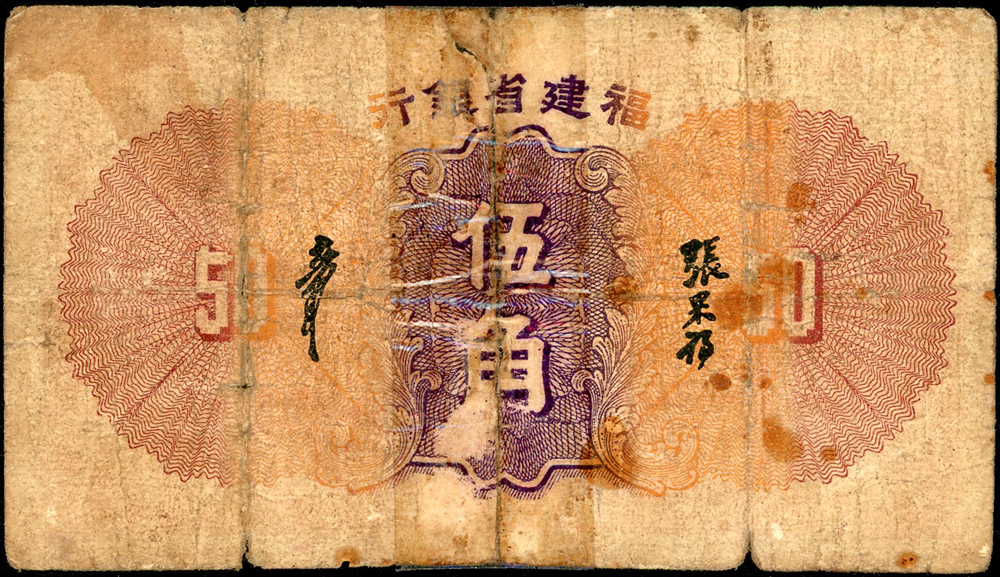 福建省銀行
伍角
50
50
張果為